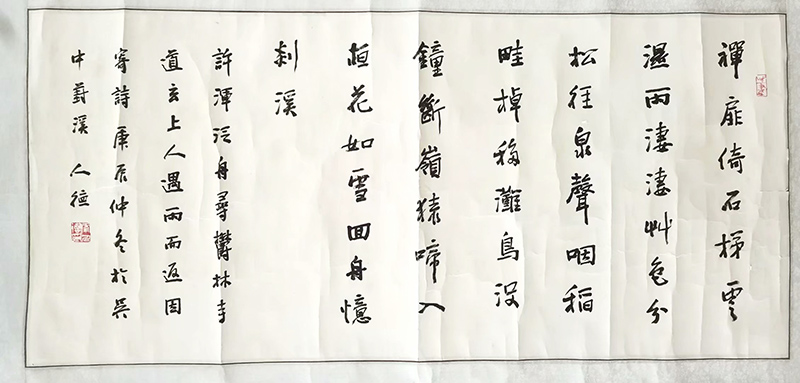 禪扉倚石梯雲
濕雨淒淒艸色分
松徑泉聲咽稻
畦棹移灘鳥沒
鐘斷嶺猿啼入
花如雪回舟憶
剡溪
許渾泛舟尋鬱林寺
道玄上人遇雨而返因
寄詩庚辰仲冬於吳
中葑溪 人德